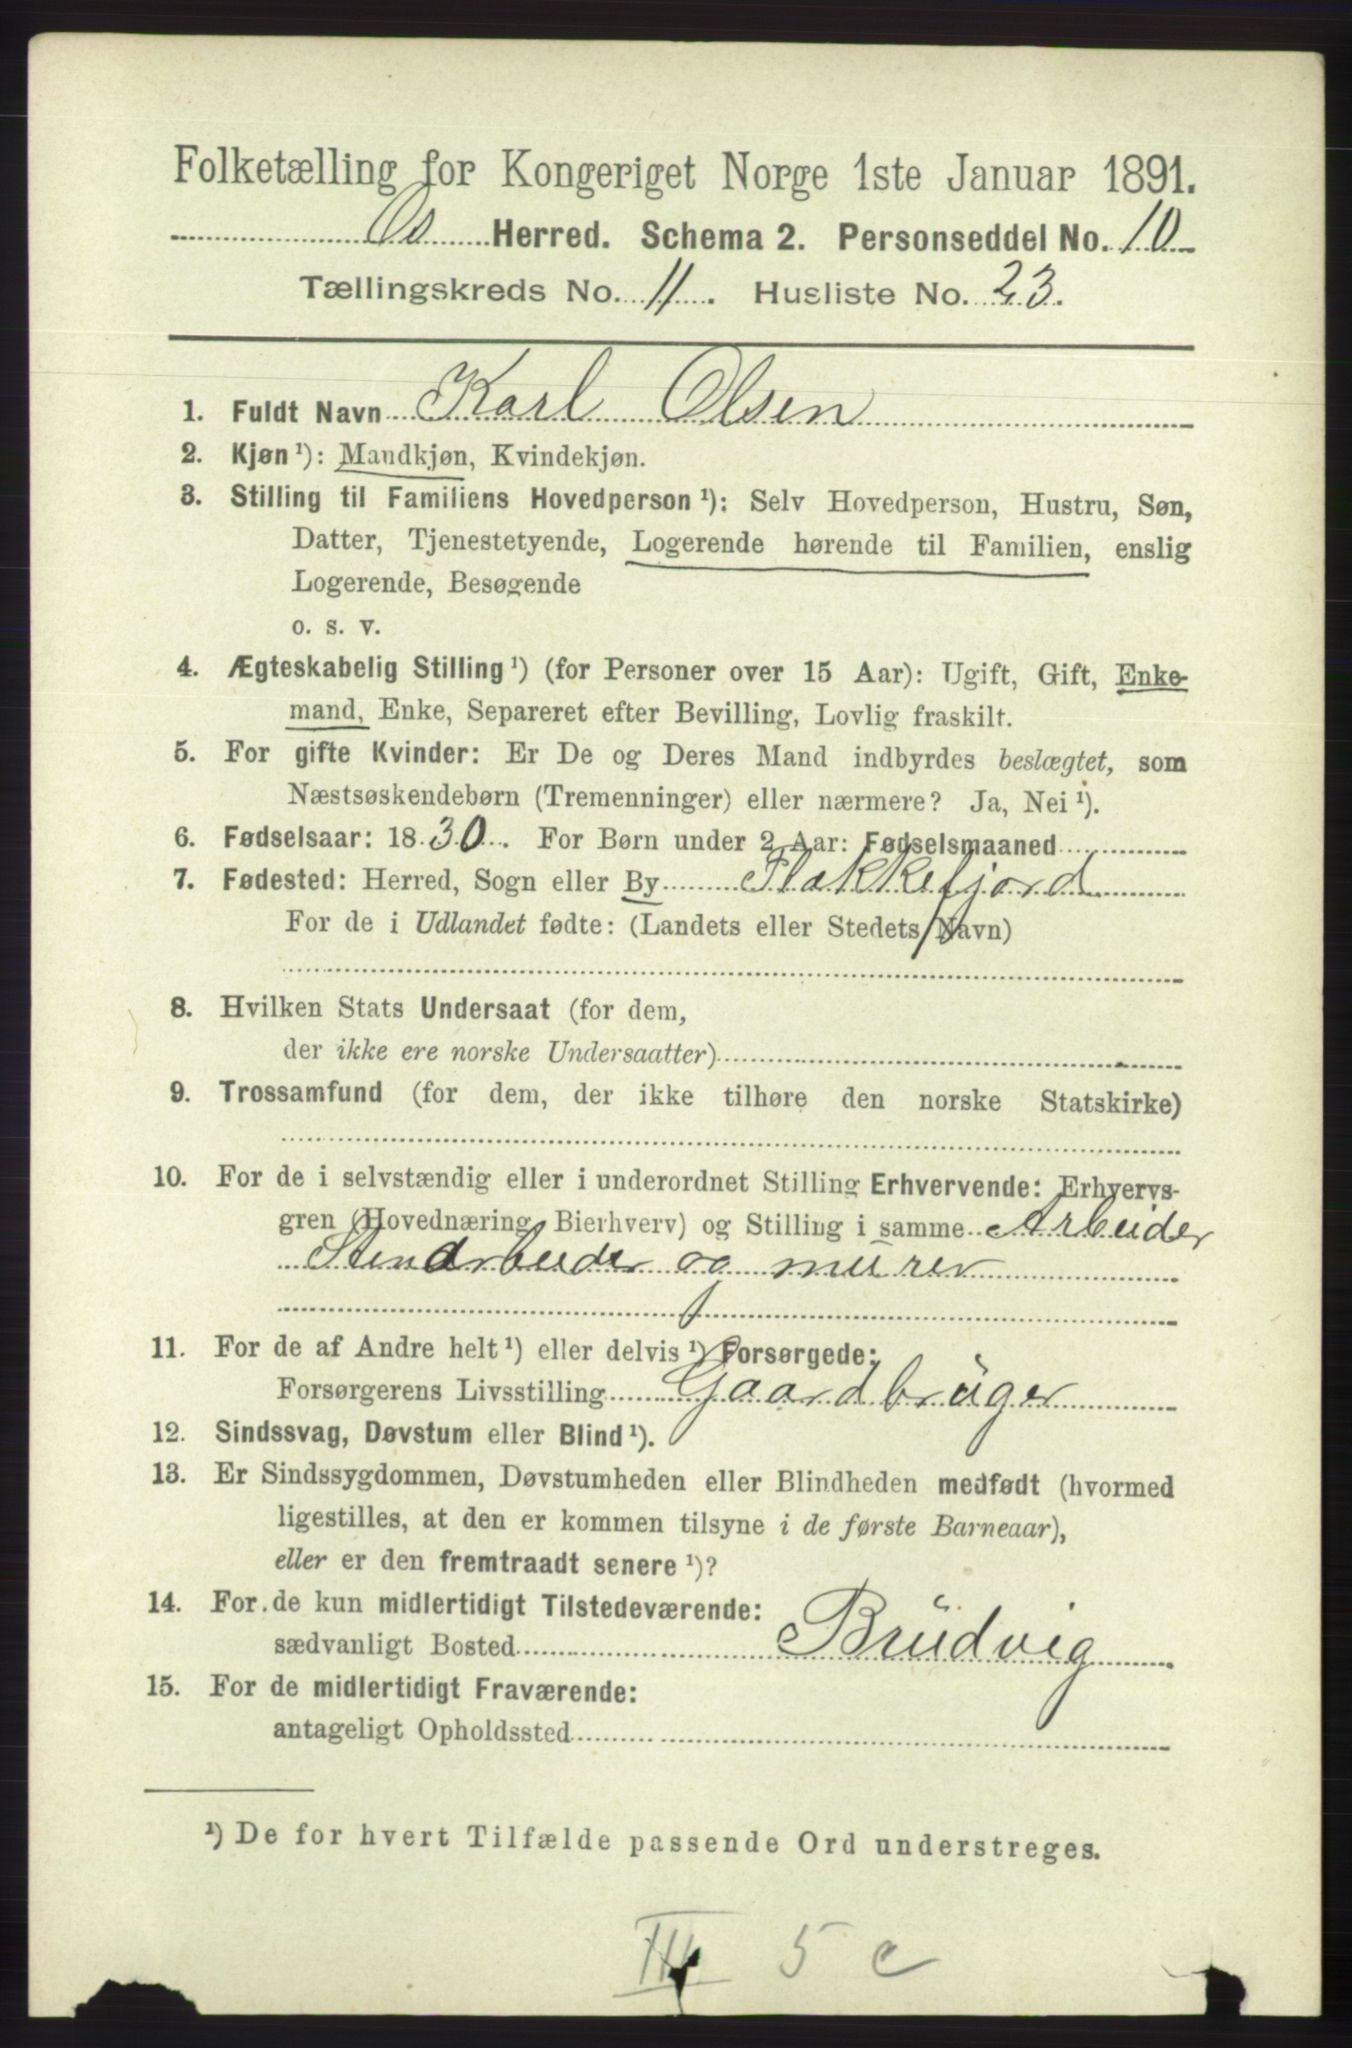 Folketælling for Kongeriget Norge 1ste Januar 1891.
Os Herred. Schema 2. Personseddel No. 10
Tællingskreds No. 11. Husliste No. 23.
1. Fuldt Navn Karl Olsen
2. Kjøn ¹): Mandkjøn, Kvindekjøn.
3. Stilling til Familiens Hovedperson ¹): Selv Hovedperson, Hustru, Søn,
Datter, Tjenestetyende, Logerende hørende til Familien, enslig
Logerende, Besøgende
o. s. v.
4. Ægteskabelig Stilling ¹) (for Personer over 15 Aar): Ugift, Gift, Enke-
mand, Enke, Separeret efter Bevilling, Lovlig fraskilt.
5. For gifte Kvinder: Er De og Deres Mand indbyrdes beslægtet, som
Næstsøskendebørn (Tremenninger) eller nærmere? Ja, Nei ¹).
6. Fødselsaar: 1830. For Børn under 2 Aar: Fødselsmaaned
7. Fødested: Herred, Sogn eller By Flakkefjord
For de i Udlandet fødte: (Landets eller Stedets Navn)
8. Hvilken Stats Undersaat (for dem,
der ikke ere norske Undersaatter)
9. Trossamfund (for dem, der ikke tilhøre den norske Statskirke)
10. For de i selvstændig eller i underordnet Stilling Erhvervende: Erhvervs-
gren (Hovednæring, Bierhverv) og Stilling i samme Arbeider
Stenarbeider og mürer
11. For de af Andre helt ¹) eller delvis ¹) Forsørgede:
Forsørgerens Livsstilling Gaardbrüger
12. Sindssvag, Døvstum eller Blind ¹).
13. Er Sindssygdommen, Døvstumheden eller Blindheden medfødt (hvormed
ligestilles, at den er kommen tilsyne i de første Barneaar),
eller er den fremtraadt senere ¹)?
14. For de kun midlertidigt Tilstedeværende:
sædvanligt Bosted Brüdvig
15. For de midlertidigt Fraværende:
antageligt Opholdssted
¹) De for hvert Tilfælde passende Ord understreges.
III 5 c